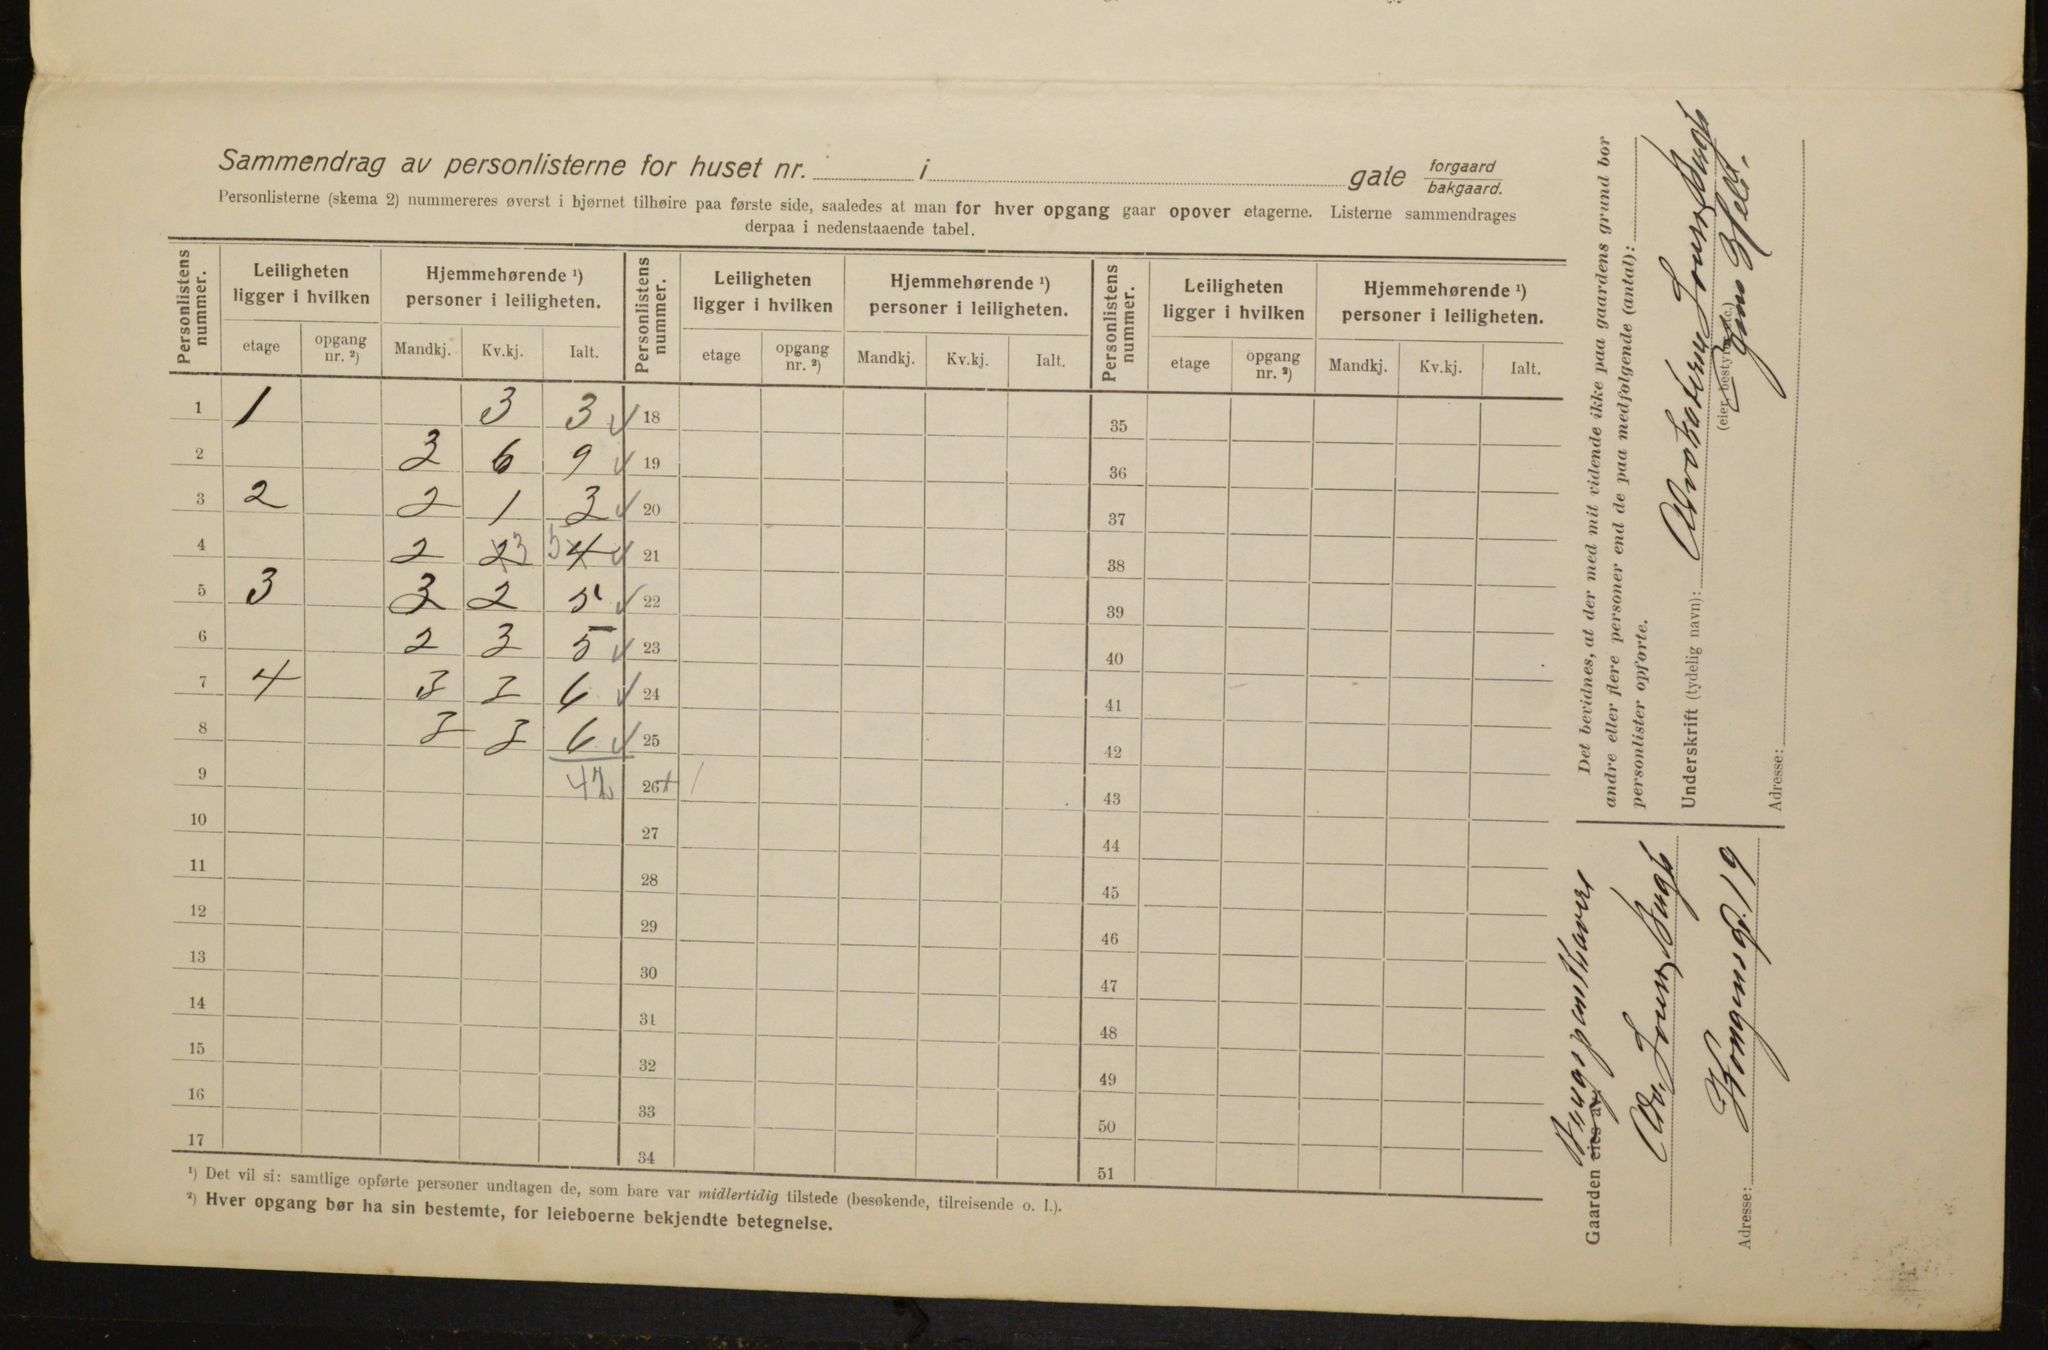 Sammendrag av personlisterne for huset nr. i gate forgaard bakgaard.
Personlisterne (skema 2) nummereres øverst i hjørnet tilhøire paa første side, saaledes at man for hver opgang gaar opover etagerne. Listerne sammendrages
derpaa i nedenstaaende tabel.
Personlistens nummer. Leiligheten ligger i hvilken Hjemmehørende ¹) personer i leiligheten. Personlistens nummer. Leiligheten ligger i hvilken Hjemmehørende ¹) personer i leiligheten. Personlistens nummer. Leiligheten ligger i hvilken Hjemmehørende ¹) personer i leiligheten.
etage opgang nr. ²) Mandkj. Kv.kj. Ialt. etage opgang nr. ²) Mandkj. Kv.kj. Ialt. etage opgang nr. ²) Mandkj. Kv.kj. Ialt.
1 1 3 3 ✓ 18 35
2 3 6 9 ✓ 19 36
3 2 2 1 3 ✓ 20 37
4 2 2 3 5 4 ✓ 21 38
5 3 3 2 5 ✓ 22 39
6 2 3 5 ✓ 23 40
7 4 3 3 6 ✓ 24 41
8 3 3 6 ✓ 25 42
9 42 26 43
10 27 44
11 28 45
12 29 46
13 30 47
14 31 48
15 32 49
16 33 50
17 34 51
¹) Det vil si: samtlige opførte personer undtagen de, som bare var midlertidig tilstede (besøkende, tilreisende o. l.).
²) Hver opgang bør ha sin bestemte, for leieboerne bekjendte betegnelse.
Det bevidnes, at der med mit vidende ikke paa gaardens grund bor
andre eller flere personer end de paa medfølgende (antal):
personlister opførte.
Underskrift (tydelig navn):
(eier, bestyrer etc.)
Adresse:
Gaarden eies av:
Adv.
Adresse: Kongensgt. 19